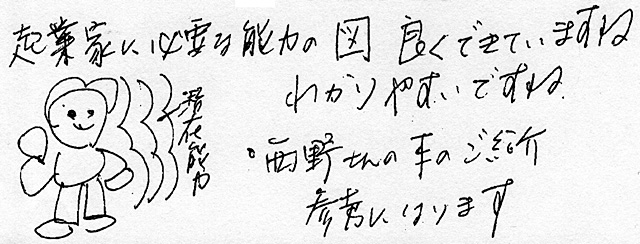 起業家に必要な能力の図 良くできていますね
わかりやすいですね
潜在能力
・西野さんの本のご紹介
参考になります